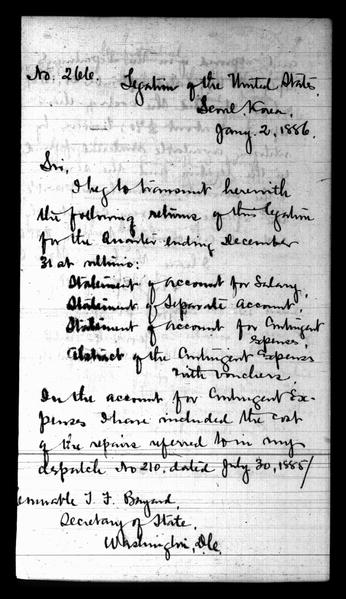 No. 266. Legation of the United States,
Seoul, Korea,
Jany. 2, 1886.
Sir,
I beg to transmit herewith
the following returns of this legation
for the Quarter ending December
31st ultimo:
Statement of account for Salary,
Statement of Separate account,
Statement of account for Contingent
Expenses,
Abstract of the Contingent Expenses
with vouchers.
In the account for Contingent Ex-
penses I have included the cost
of the repairs referred to in my
dispatch No 210. dated July 30, 1885/
Honorable T. F. Bayard,
Secretary of State,
Washington, D.C.